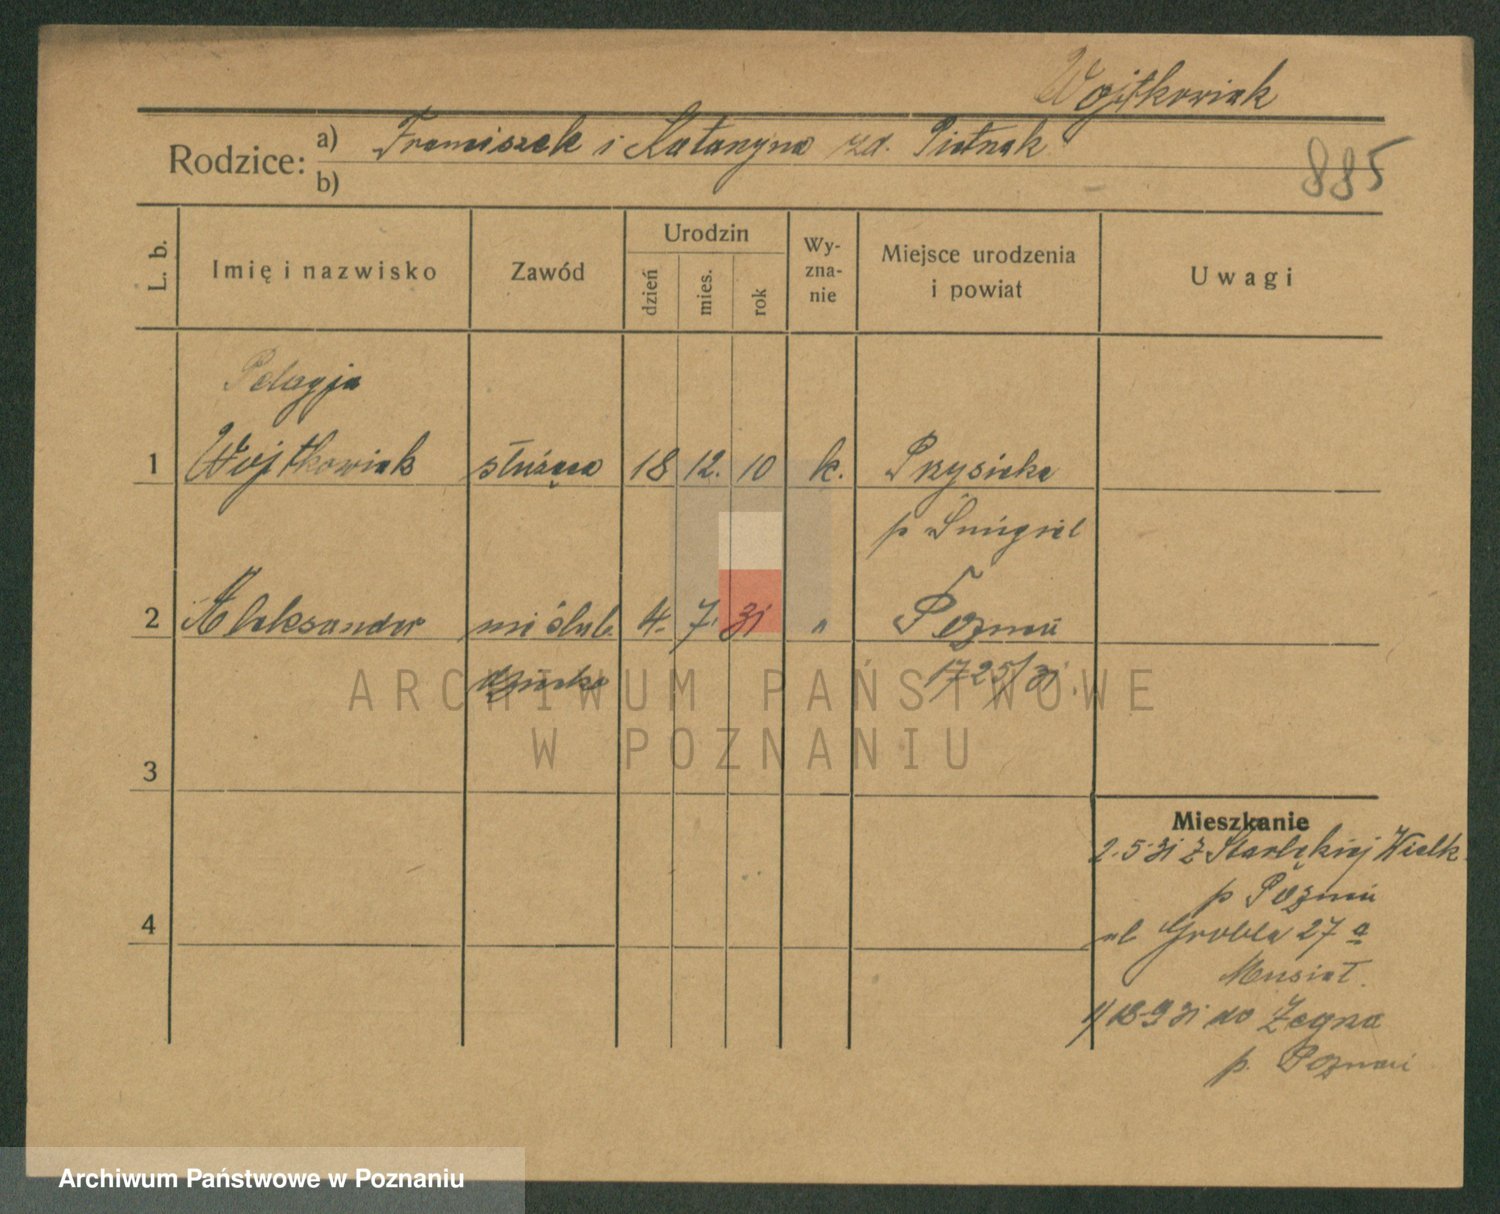 Wojtkowiak
Rodzice: a) Franciszek i Katarzyna zd. Pietrzak
b)
885
L. b.
Imię i nazwisko
Zawód
Urodzin
dzień
mies.
rok
Wy-
zna-
nie
Miejsce urodzenia
i powiat
Uwagi
Pelagja
1 Wojtkowiak służąca 18 12. 10 k. Przysieka
p Śmigiel
2 Aleksander nieślub. 4. 7. 31 " Poznań
dziecko 1725/31.
ARCHIWUM PAŃSTWOWE
W POZNANIU
3
Mieszkanie
2.5.31 z Starłękiej Wielk.
p Poznań
4
ul Grobla 27 a
Musiał.
18.9 31 do Żegrza
p. Poznań
Archiwum Państwowe w Poznaniu